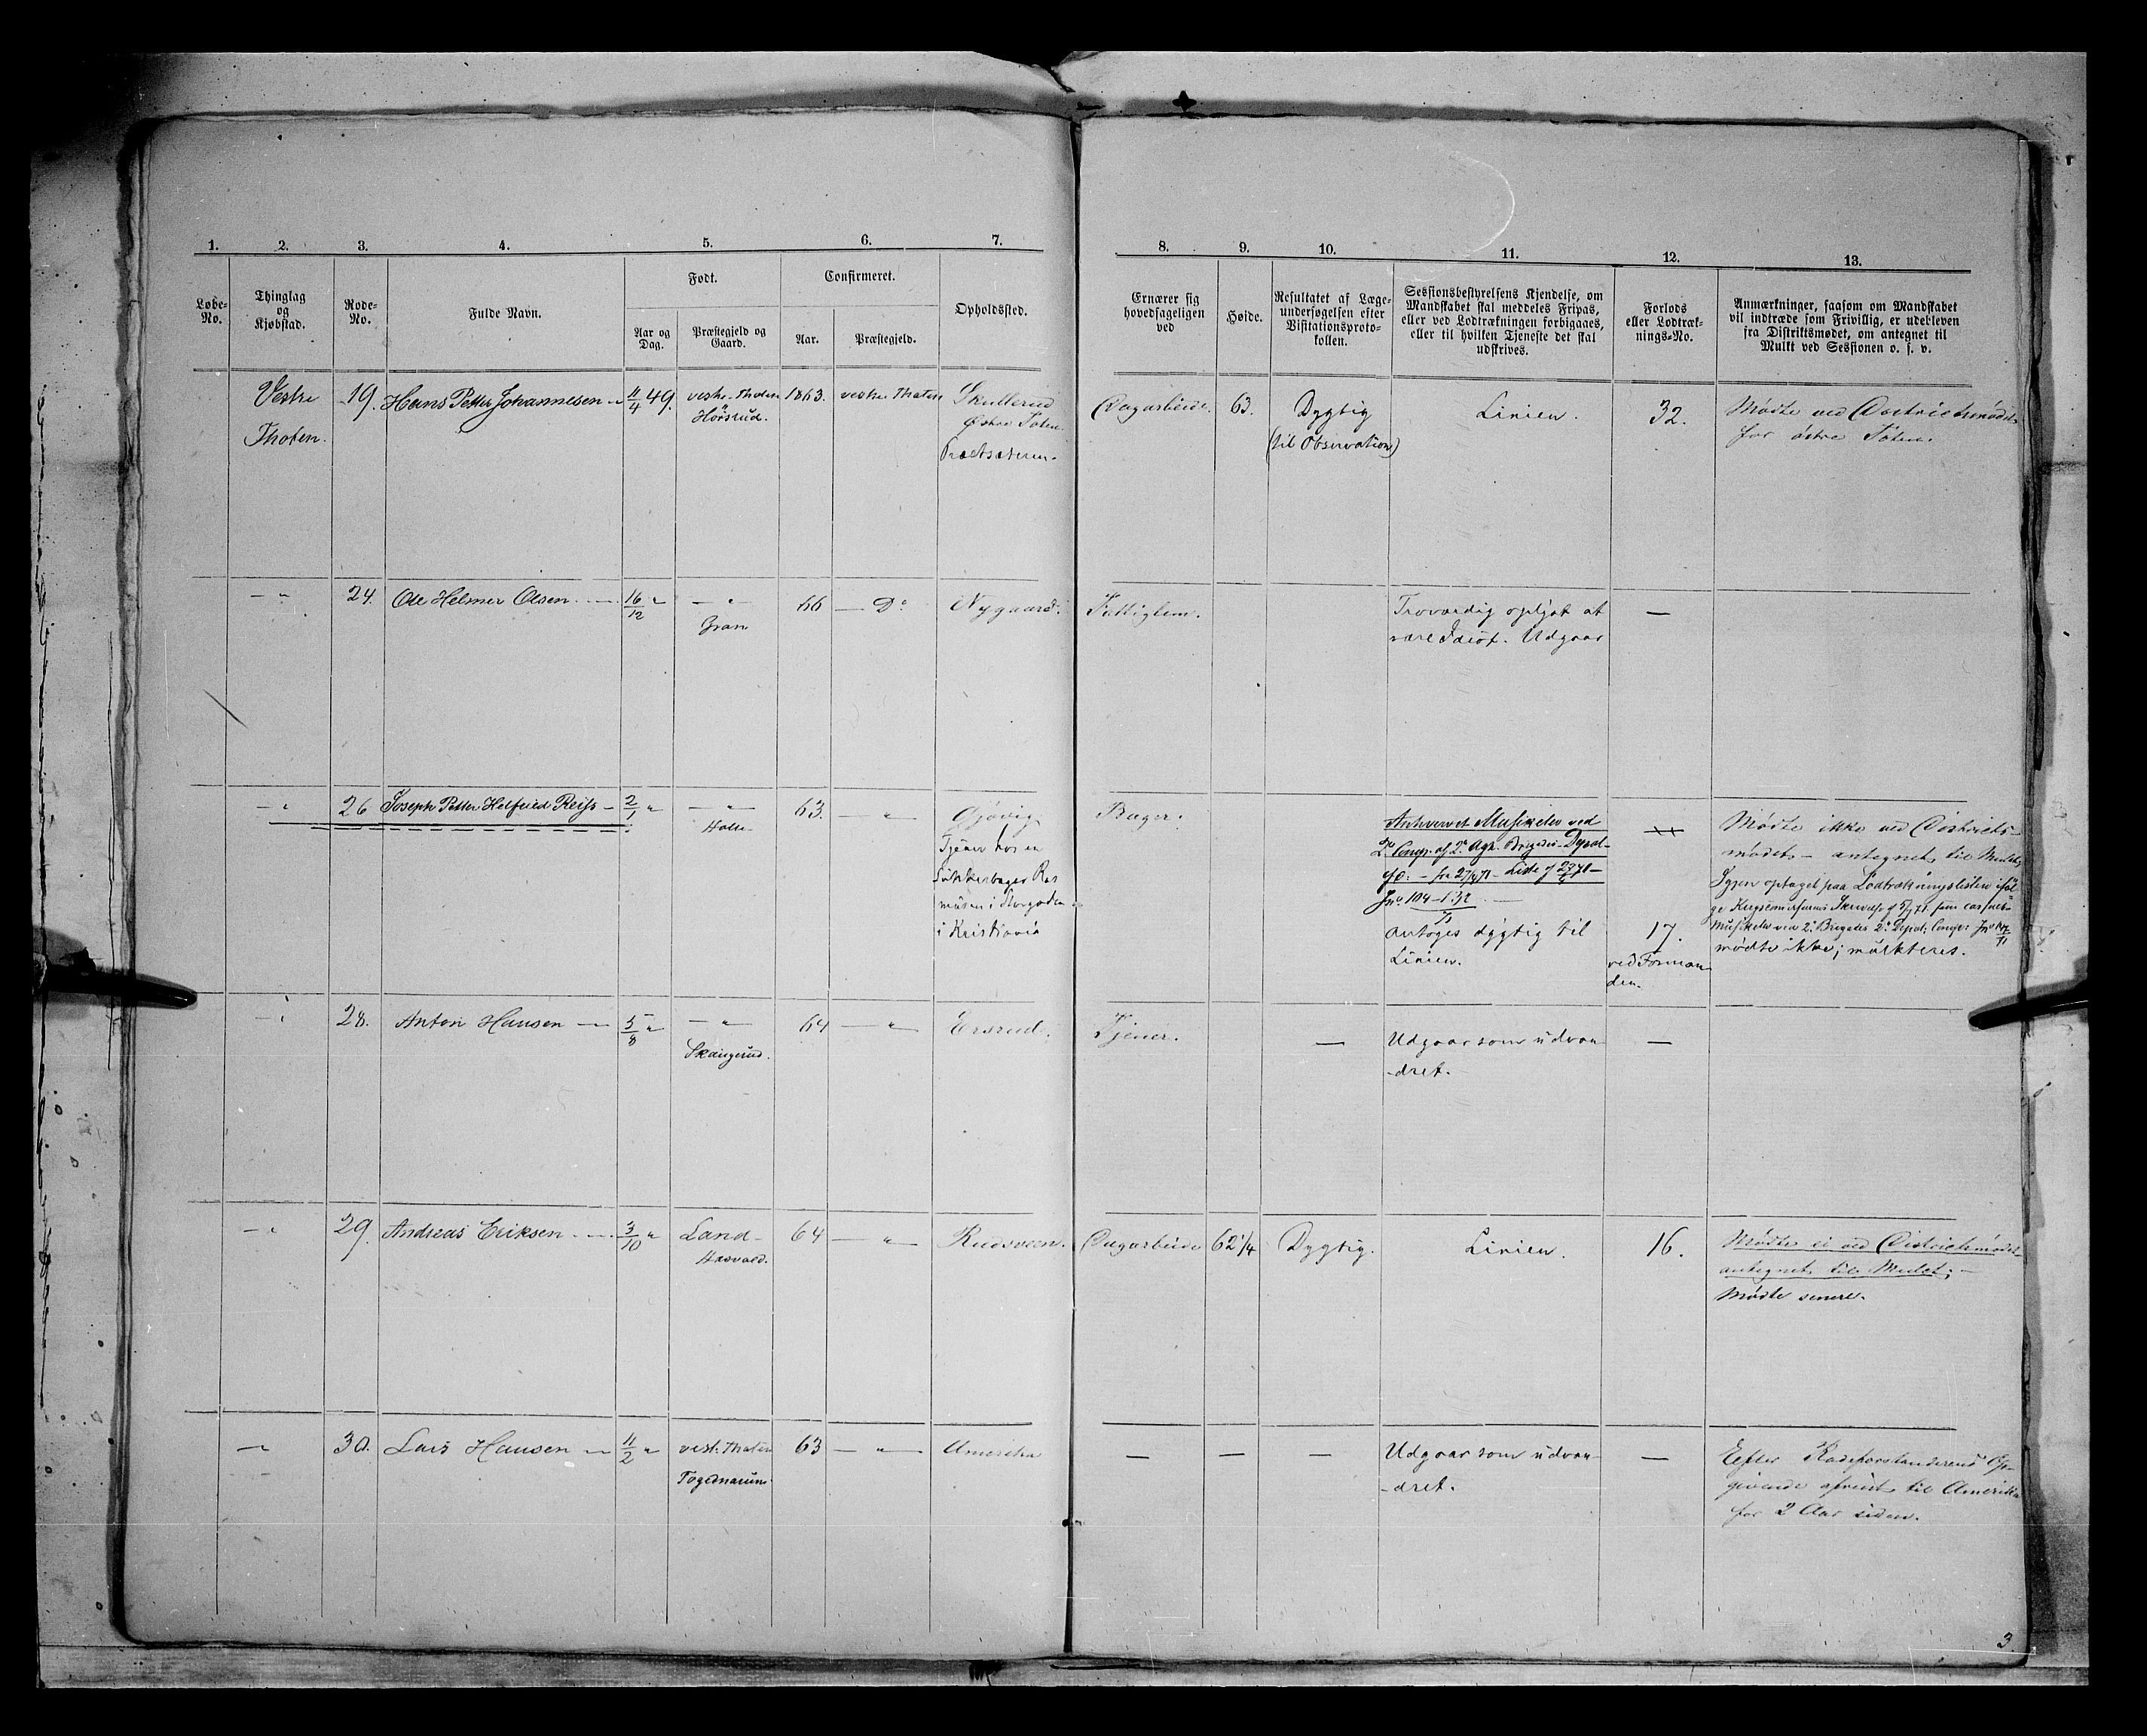 1. 2. 3. 4. 5. 6. 7.
Løbe-No. Thinglag og Kjøbstad. Rode-No. Fulde Navn. Født. Confirmeret. Opholdssted.
Aar og Dag. Præstegjeld og Gaard. Aar. Præstegjeld.
8. 9. 10. 11. 12. 13.
Ernærer sig hovedsageligen ved
Høide.
Resultatet af Læge-
undersøgelsen efter
Visitationsproto-
kollen.
Sessionsbestyrelsens Kjendelse, om
Mandskabet skal meddeles Fripas,
eller ved Lodtrækningen forbigaaes,
eller til hvilken Tjeneste det skal
udskrives.
Forlods
eller Lodtræk-
nings-No.
Anmærkninger, saasom om Mandskabet
vil indtræde som Frivillig, er udebleven
fra Distriktsmødet, om antegnet til
Mulkt ved Sessionen o. s. v.
Vestre Thoten. 19. Hans Petter Johannesen 11/4 49. vestre Thoten Hörsrud. 1863. vestre Thoten Skullerud Østre Toten.
Dagarbeide. 63. Dygtig (til Observation) Linien. 32. Mødte ved Districtsmødet
for østre Toten.
— " 24. Ole Helmer Olsen 16/12 " — " — Gran 66 — Do Nygaard.
Fattiglem. Troværdig oplyst at
være Idiot. Udgaar —
— " 26 Joseph Petter Helfried Reiss 2/1 " — " — 63. — " Gjøvig
Tjener hos en
Sukkerbager Ras
mussen i Storgaden
i Kristiania
Bager.
Musiker ved
Jno 104
Antoges dygtig til
Linien.
17.
ved Forman
den.
Mødte ikke ved Districts-
mødet — antegnet til Mulct.
Igjen optaget paa Lodtrækningslisten iføl
ge
mødte ikke; mulkteret.
— " 28. Anton Hansen 5/8 " — " — Skangerud. 64 — " — Ersrud.
Tjener. — Udgaar som udvan
-dret. —
— " 29. Andreas Eriksen 3/10 " Land — Hasvold. 64 — " — Rudsveen.
Dagarbeide 62 1/4 Dygtig. Linien. 16. Mødte ei ved Districtsmødet
antegnet til Mulct; —
Mødte senere.
— " 30. Lars Hansen 11/2 " vest. Thoten 63 — " — Amerika
— — — Udgaar som udvan-
-dret. — Efter Rodeforstanderens Op-
givende afreist til Amerika
for 2 Aar siden.
3.